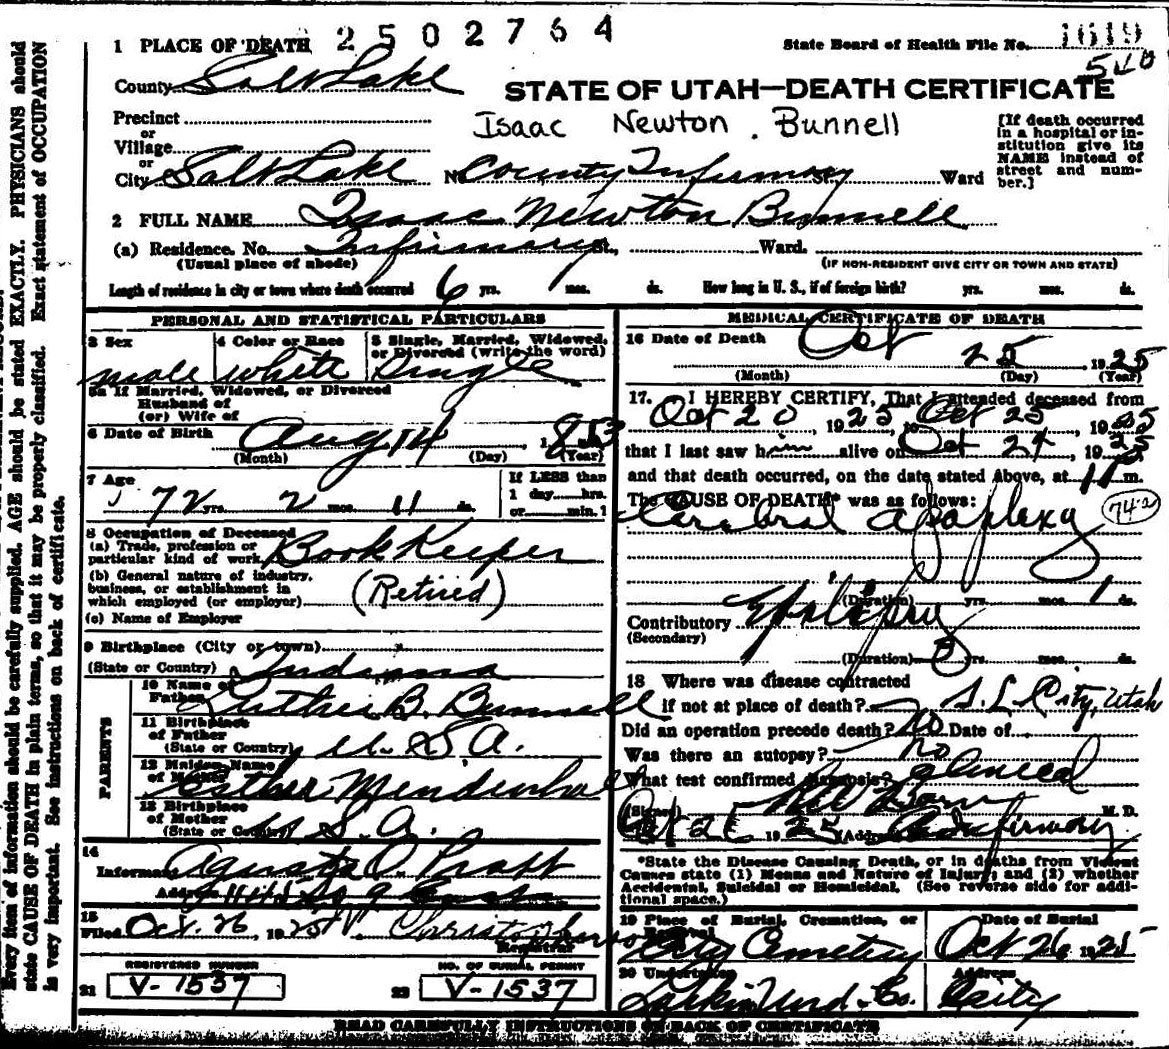 2502764
State Board of Health File No. 1619
540
1 PLACE OF DEATH
County Salt Lake
STATE OF UTAH—DEATH CERTIFICATE
Isaac Newton Bunnell
Precinct
or
Village
or
City Salt Lake No. County Infirmary St. Ward
[If death occurred in a hospital or institution give its NAME instead of street and number.]
2 FULL NAME Isaac Newton Bunnell
(a) Residence. No. Infirmary St., Ward.
(Usual place of abode) (IF NON-RESIDENT GIVE CITY OR TOWN AND STATE)
Length of residence in city or town where death occurred 6 yrs. mos. ds. How long in U. S., if of foreign birth? yrs. mos. ds.
PERSONAL AND STATISTICAL PARTICULARS
3 Sex 4 Color or Race 5 Single, Married, Widowed, or Divorced (write the word)
male white Single
5a If Married, Widowed, or Divorced
Husband of
(or) Wife of
6 Date of Birth Aug 14, 1853
(Month) (Day) (Year)
7 Age 72 yrs. 2 mos. 11 ds.
If LESS than
1 day hrs.
or min.?
8 Occupation of Deceased
(a) Trade, profession or
particular kind of work Book Keeper
(b) General nature of industry,
business, or establishment in
which employed (or employer) (Retired)
(c) Name of Employer
9 Birthplace (City or town)
(State or Country) Indiana
PARENTS
10 Name of
Father Luther B. Bunnell
11 Birthplace
of Father
(State or Country) U. S. A.
12 Maiden Name
of Mother Esther Mendenhall
13 Birthplace
of Mother
(State or Country) U. S. A.
14
Informant O. Pratt
Address
15
Filed Oct. 26, 1925 Christopherson
Registrar
REGISTERED NUMBER NO. OF BURIAL PERMIT
21 V-1537 22 V-1537
MEDICAL CERTIFICATE OF DEATH
16 Date of Death Oct 25, 1925
(Month) (Day) (Year)
17. I HEREBY CERTIFY, That I attended deceased from
Oct 20, 1925, to Oct 25, 1925
that I last saw him alive on Oct 24, 1925
and that death occurred, on the date stated above, at m.
The CAUSE OF DEATH* was as follows:
Cerebral apoplexy 74-2
(Duration) yrs. mos. 1 ds.
Contributory Epilepsy
(Secondary)
(Duration) yrs. mos. ds.
18 Where was disease contracted
if not at place of death? S. L. City, Utah
Did an operation precede death? No Date of
Was there an autopsy? no
What test confirmed diagnosis?
(Signed) M. D.
Oct 26 1925 (Address) Infirmary
*State the Disease Causing Death, or in deaths from Violent
Causes state (1) Means and Nature of Injury; and (2) whether
Accidental, Suicidal or Homicidal. (See reverse side for addi-
tional space.)
19 Place of Burial, Cremation, or Removal Date of Burial
City Cemetery Oct 26 1925
20 Undertaker Address
Larkin Und. Co. City
READ CAREFULLY INSTRUCTIONS ON BACK OF CERTIFICATE
Every item of information should be carefully supplied. AGE should be stated EXACTLY. PHYSICIANS should
state CAUSE OF DEATH in plain terms, so that it may be properly classified. Exact statement of OCCUPATION
is very important. See instructions on back of certificate.